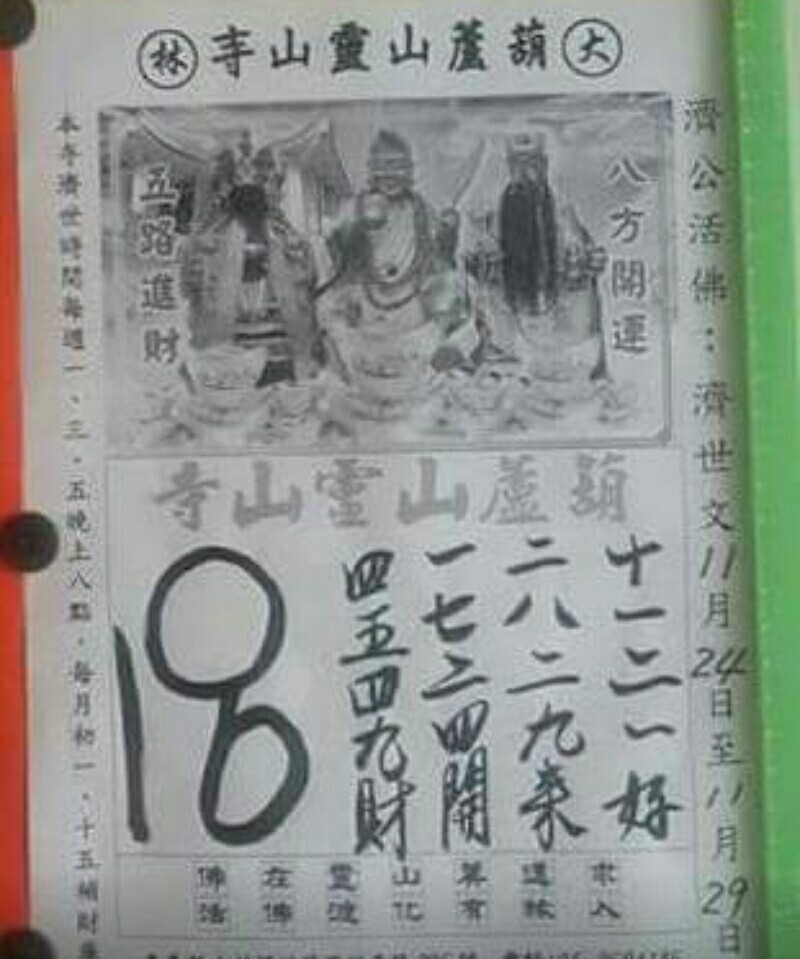 大 葫蘆山靈山寺 林
濟公活佛：濟世文11月24日至11月29日
八方開運
五路進財
葫蘆山靈山寺
十一二一好
二八二九來
一七二四開
四五四九財
18
山化
靈渡
在佛
佛活
本寺濟世時間每週一、三、五晚上八點，每月初一、十五補財